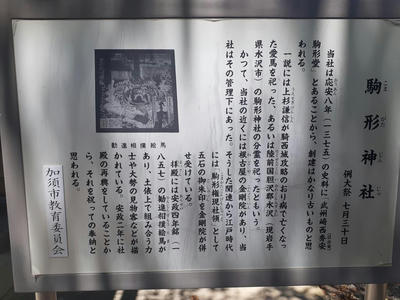 駒形神社
例大祭 七月三十日
当社は応安八年（一三七五）の史料に「武州崎西郡
駒形堂」とあることから、創建はかなり古いものと思
われる。
一説には上杉謙信が騎西城攻略のおり病でなくなっ
た愛馬を祀った、あるいは陸前国胆沢郡水沢（現岩手
県水沢市）の駒形神社の分霊を祀ったともいう。
かつて、当社の近くには根古屋の金剛院があり、当
社はその管理下にあった。そうした関連から江戸時代
には「駒形権現社領」として
五石の御朱印を金剛院が併
せ受けている。
拝殿には安政四年銘（一
八五七）の勧進相撲絵馬が
あり、土俵上で組み合う力
士や大勢の見物客などが描
かれている。安政二年に社
殿の再興をしていることか
ら、それを祝っての奉納と
思われる。
勧進相撲絵馬
加須市教育委員会